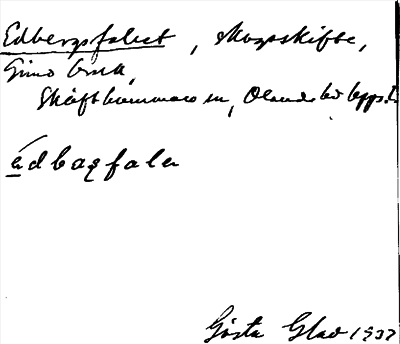 Edbergsfallet, Skogsskifte,
Gimo bruk,
Skäfthammars sn, Olands hd Upps.l.
èdbaɐ̯falɐ
Gösta Glad 1937